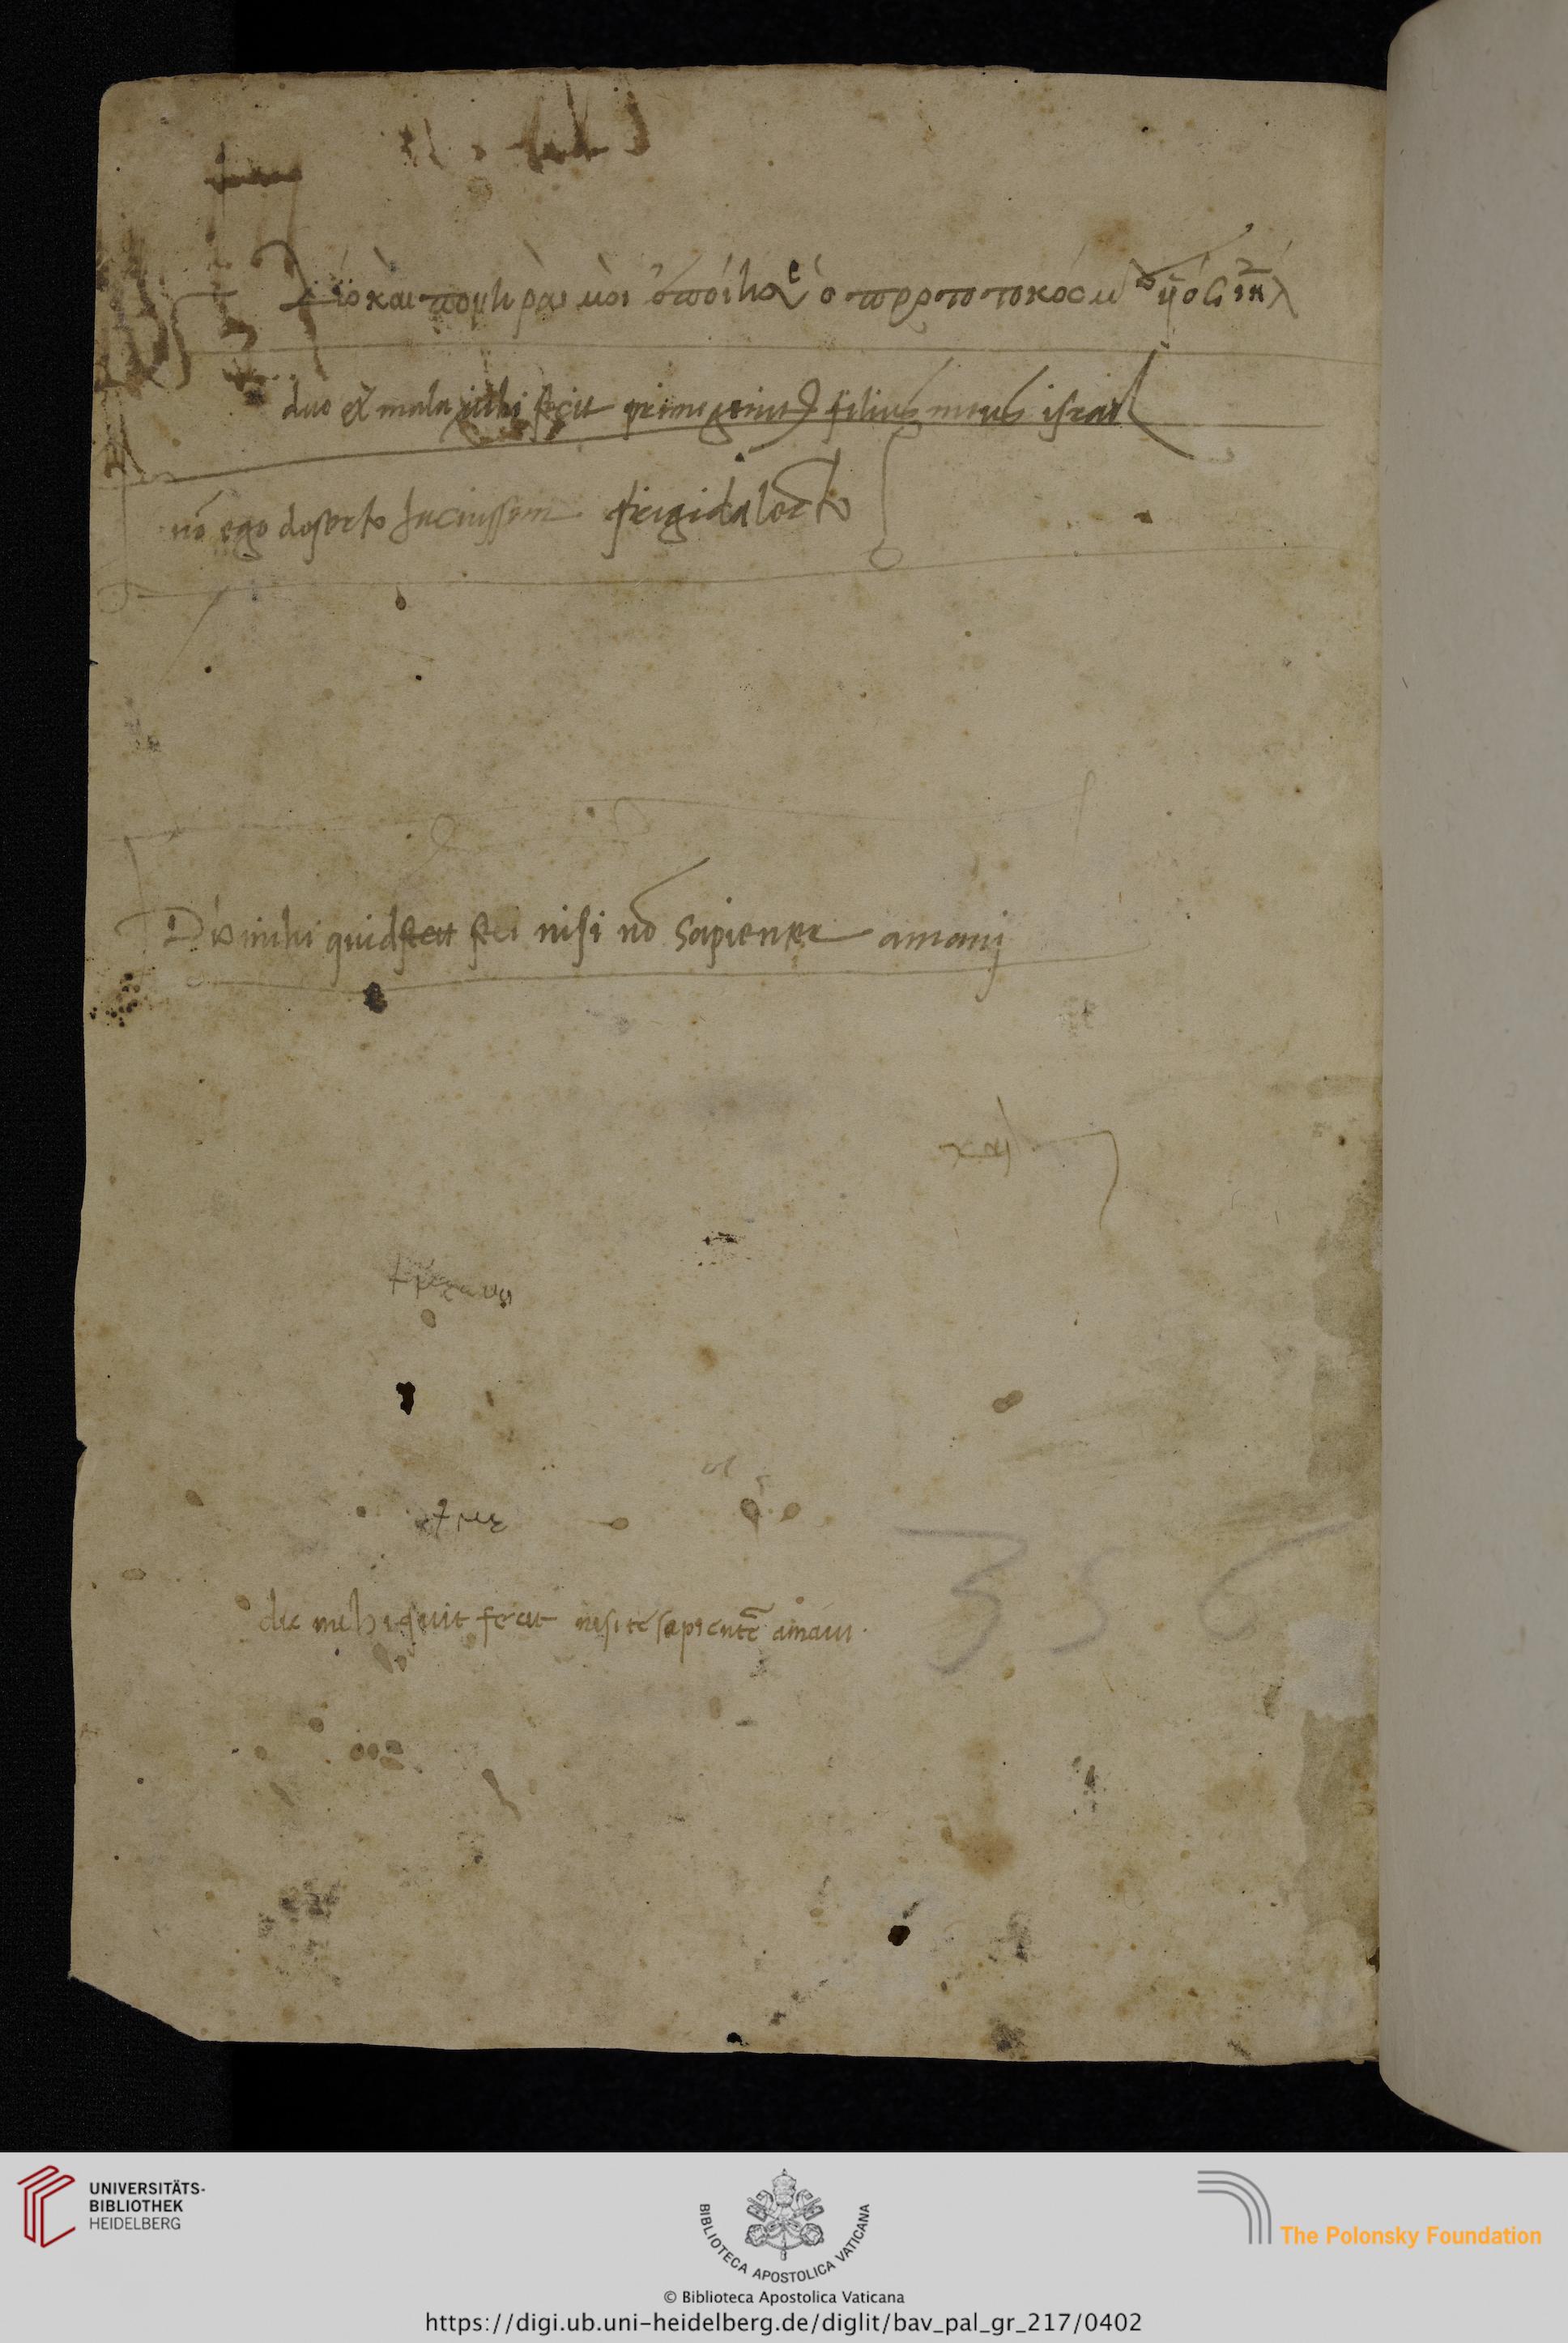 δύο και πονηρὰ μοι ἐποίησε ὁ προτοτοκός μου ὑιός ιηλ
duo et mala mihi fecit primogenitus filius meus israel
nō ego deserto Iacuissem frigida lecto
Dic mihi quid feci nisi nō sapienter amavi
και
dic mehi quit fecit nisi te sapientē amavi.
356
UNIVERSITÄTS-
BIBLIOTHEK
HEIDELBERG
BIBLIOTECA APOSTOLICA VATICANA
The Polonsky Foundation
© Biblioteca Apostolica Vaticana
https://digi.ub.uni-heidelberg.de/diglit/bav_pal_gr_217/0402